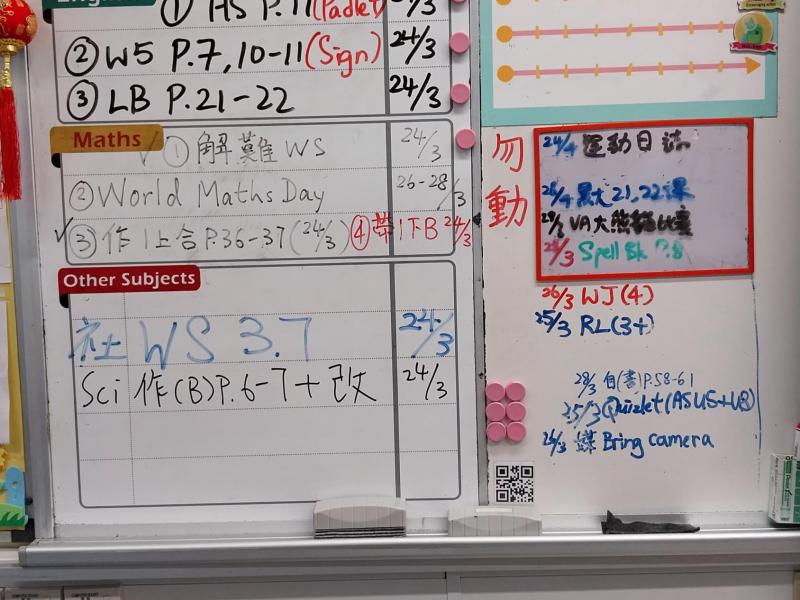 ① AS P.11 (Padlet) 24/3
② WS P.7, 10-11 (Sign) 24/3
③ LB P.21-22 24/3
Maths
① 解難 WS 24/3
② World Maths Day 26-28/3
✓ ③ 作1上合 P.36-37 (24/3) ④ 帶1下B 24/3
Other Subjects
社 WS 3.7 24/3
Sci 作(B)P.6-7+改 24/3
勿動
24/4 運動日誌
21,22課
VA大熊貓比賽
Spell Bk P.8
26/3 WJ(4)
25/3 RL(3+)
28/3 自(書)P.58-61
25/3 Quizlet (ASU5+U8)
Bring camera